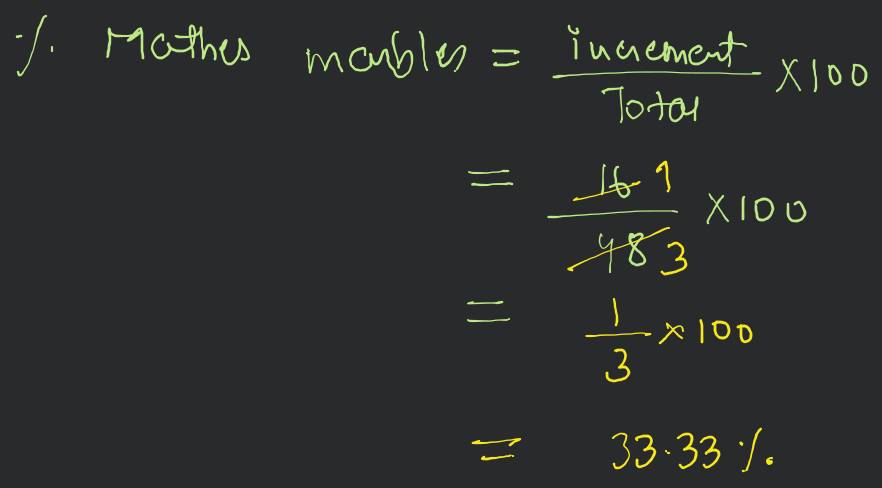 % Mathes marbles = increment / Total × 100
= 16 1 / 48 3 × 100
= 1 / 3 × 100
= 33.33 %.